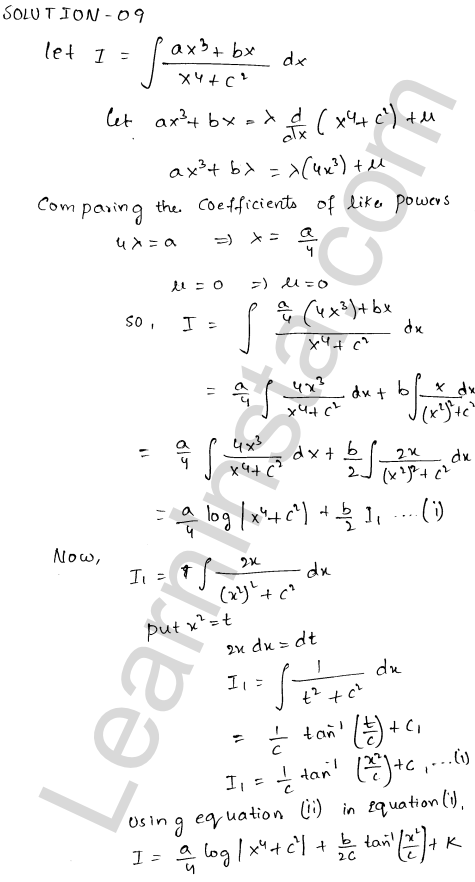 SOLUTION-09
let I = ∫ (ax³ + bx)/(x⁴ + c²) dx
let ax³ + bx = λ d/dx (x⁴ + c²) + μ
ax³ + bλ = λ(4x³) + μ
Comparing the coefficients of like powers
4λ = a ⇒ λ = a/4
μ = 0 ⇒ μ = 0
so, I = ∫ (a/4 (4x³) + bx)/(x⁴ + c²) dx
= a/4 ∫ 4x³/(x⁴ + c²) dx + b ∫ x dx/((x²)² + c²
= a/4 ∫ 4x³/(x⁴ + c²) dx + b/2 ∫ 2x/((x²)² + c²) dx
= a/4 log |x⁴ + c²| + b/2 I₁ ....(i)
Now,
I₁ = ∫ 2x/((x²)² + c²) dx
put x² = t
2x dx = dt
I₁ = ∫ 1/(t² + c²) dx
= 1/c tan⁻¹ (t/c) + c₁
I₁ = 1/c tan⁻¹ (x²/c) + c₁ ...(i)
Using equation (ii) in equation (i),
I = a/4 log |x⁴ + c²| + b/2c tan⁻¹ (x²/c) + K
Learninsta.com